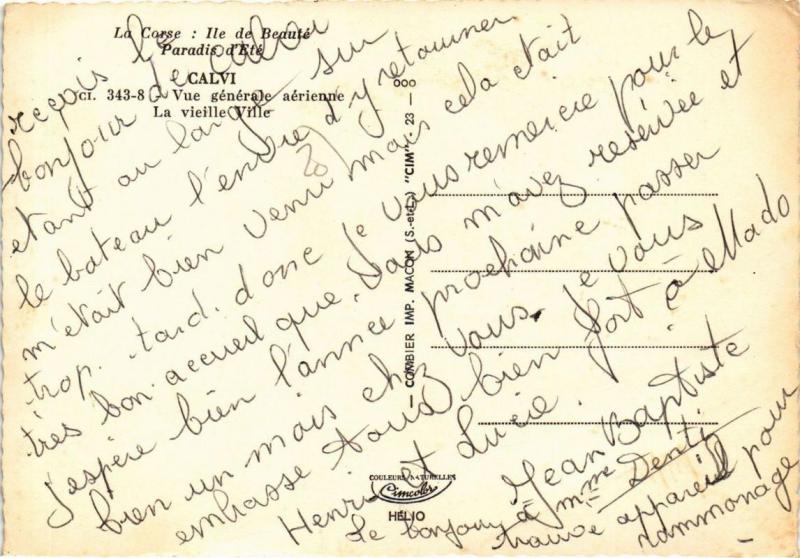 La Corse : Ile de Beauté
Paradis d'Eté
CALVI
CI. 343-8 - Vue générale aérienne
La vieille Ville
— COMBIER IMP. MACON (S.-et-L.) "CIM" - 23 — ooo
COULEURS NATURELLES
Cimcolor
HELIO
20
reçois le
bonjour de calvi
etant au large sur
le bateau l'envie d'y retourner
m'était bien venu mais cela était
trop tard. donc je vous remercie pour le
très bon accueil que vous m'avez réservée et
J'espère bien l'année prochaine passer
bien un mois chez vous. Je vous
embrasse tous bien fort à Mado
Henri et Lucie. Jean Baptiste
Le bonjour à Mme Denti
trouve appareil pour
rammonage